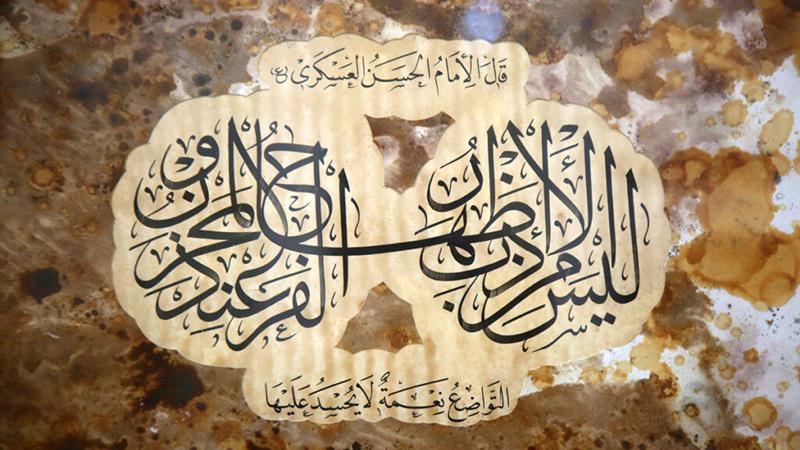 قَالَ الاِمَامُ الحَسَنُ العَسْکَرى (ع)
لَيْسَ مِنَ الْأَدَبِ إِظْهَارُ الْفَرَحِ عِنْدَ الْمَحْزُونِ
التَّوَاضُعُ نِعْمَةٌ لَا يُحْسَدُ عَلَيْهَا